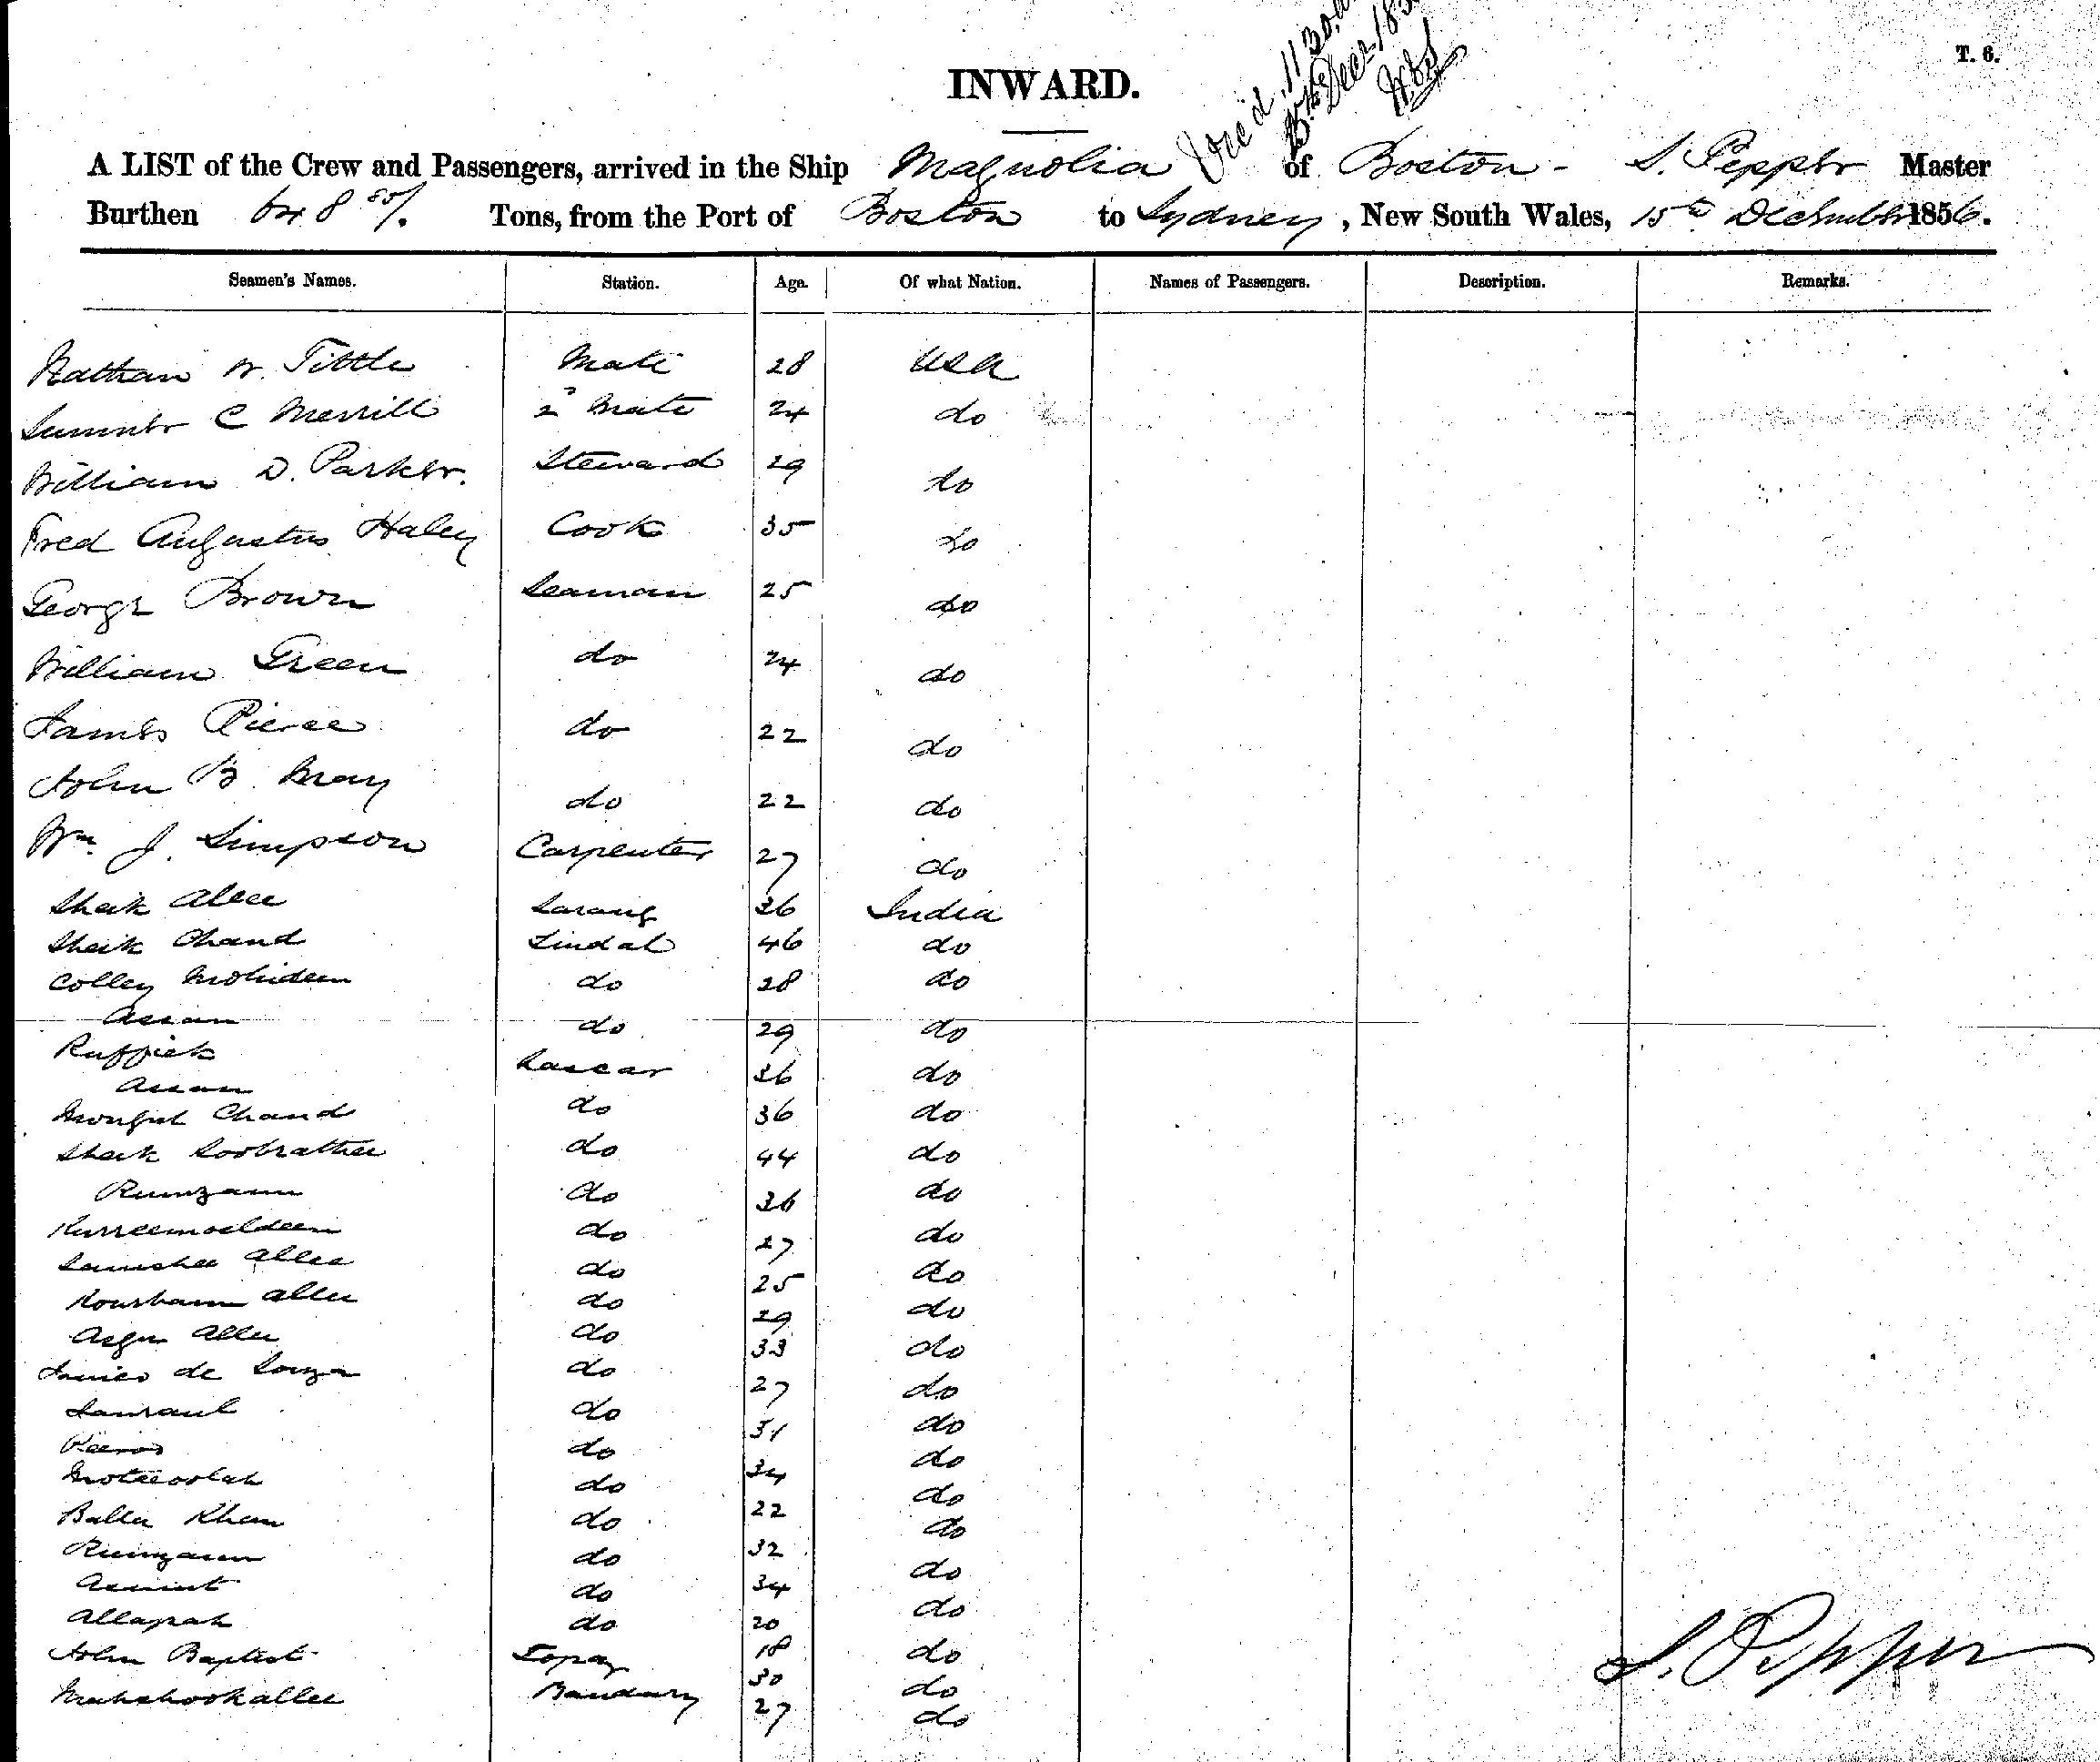 T. 6.
INWARD.
A LIST of the Crew and Passengers, arrived in the Ship Magnolia of Boston - S. Pepper Master
Burthen Tons, from the Port of Boston to Sydney, New South Wales, 15th December 1856.
Seamen's Names. Station. Age. Of what Nation. Names of Passengers. Description. Remarks.
Nathan W. Tittle Mate 28 USA
Sumner C Merrill 2d Mate 24 do
William D. Parker. Steward 29 do
Fred Augustus Haley Cook 35 do
George Brown Seaman 25 do
William Green do 24 do
James Pierce do 22 do
John B. May do 22 do
Wm. J. Simpson Carpenter 27 do
Sheik Allee Sarang 36 India
Sheik Chand Tindal 46 do
Colley Mohideen do 28 do
Assan do 29 do
Ruffick Lascar 36 do
Assan do 36 do
Chand do 44 do
Sheik do 36 do
Rumzann do 27 do
Kurreemoeldeen do 25 do
Allee do 29 do
Allee do 33 do
Allee do 27 do
de Souza do 31 do
do 34 do
do 22 do
do 32 do
Khan do 34 do
Rumzann do 20 do
do 18 do
Allapah
John Baptist Topaz 30 do
Bandary 27 do
S. Pepper